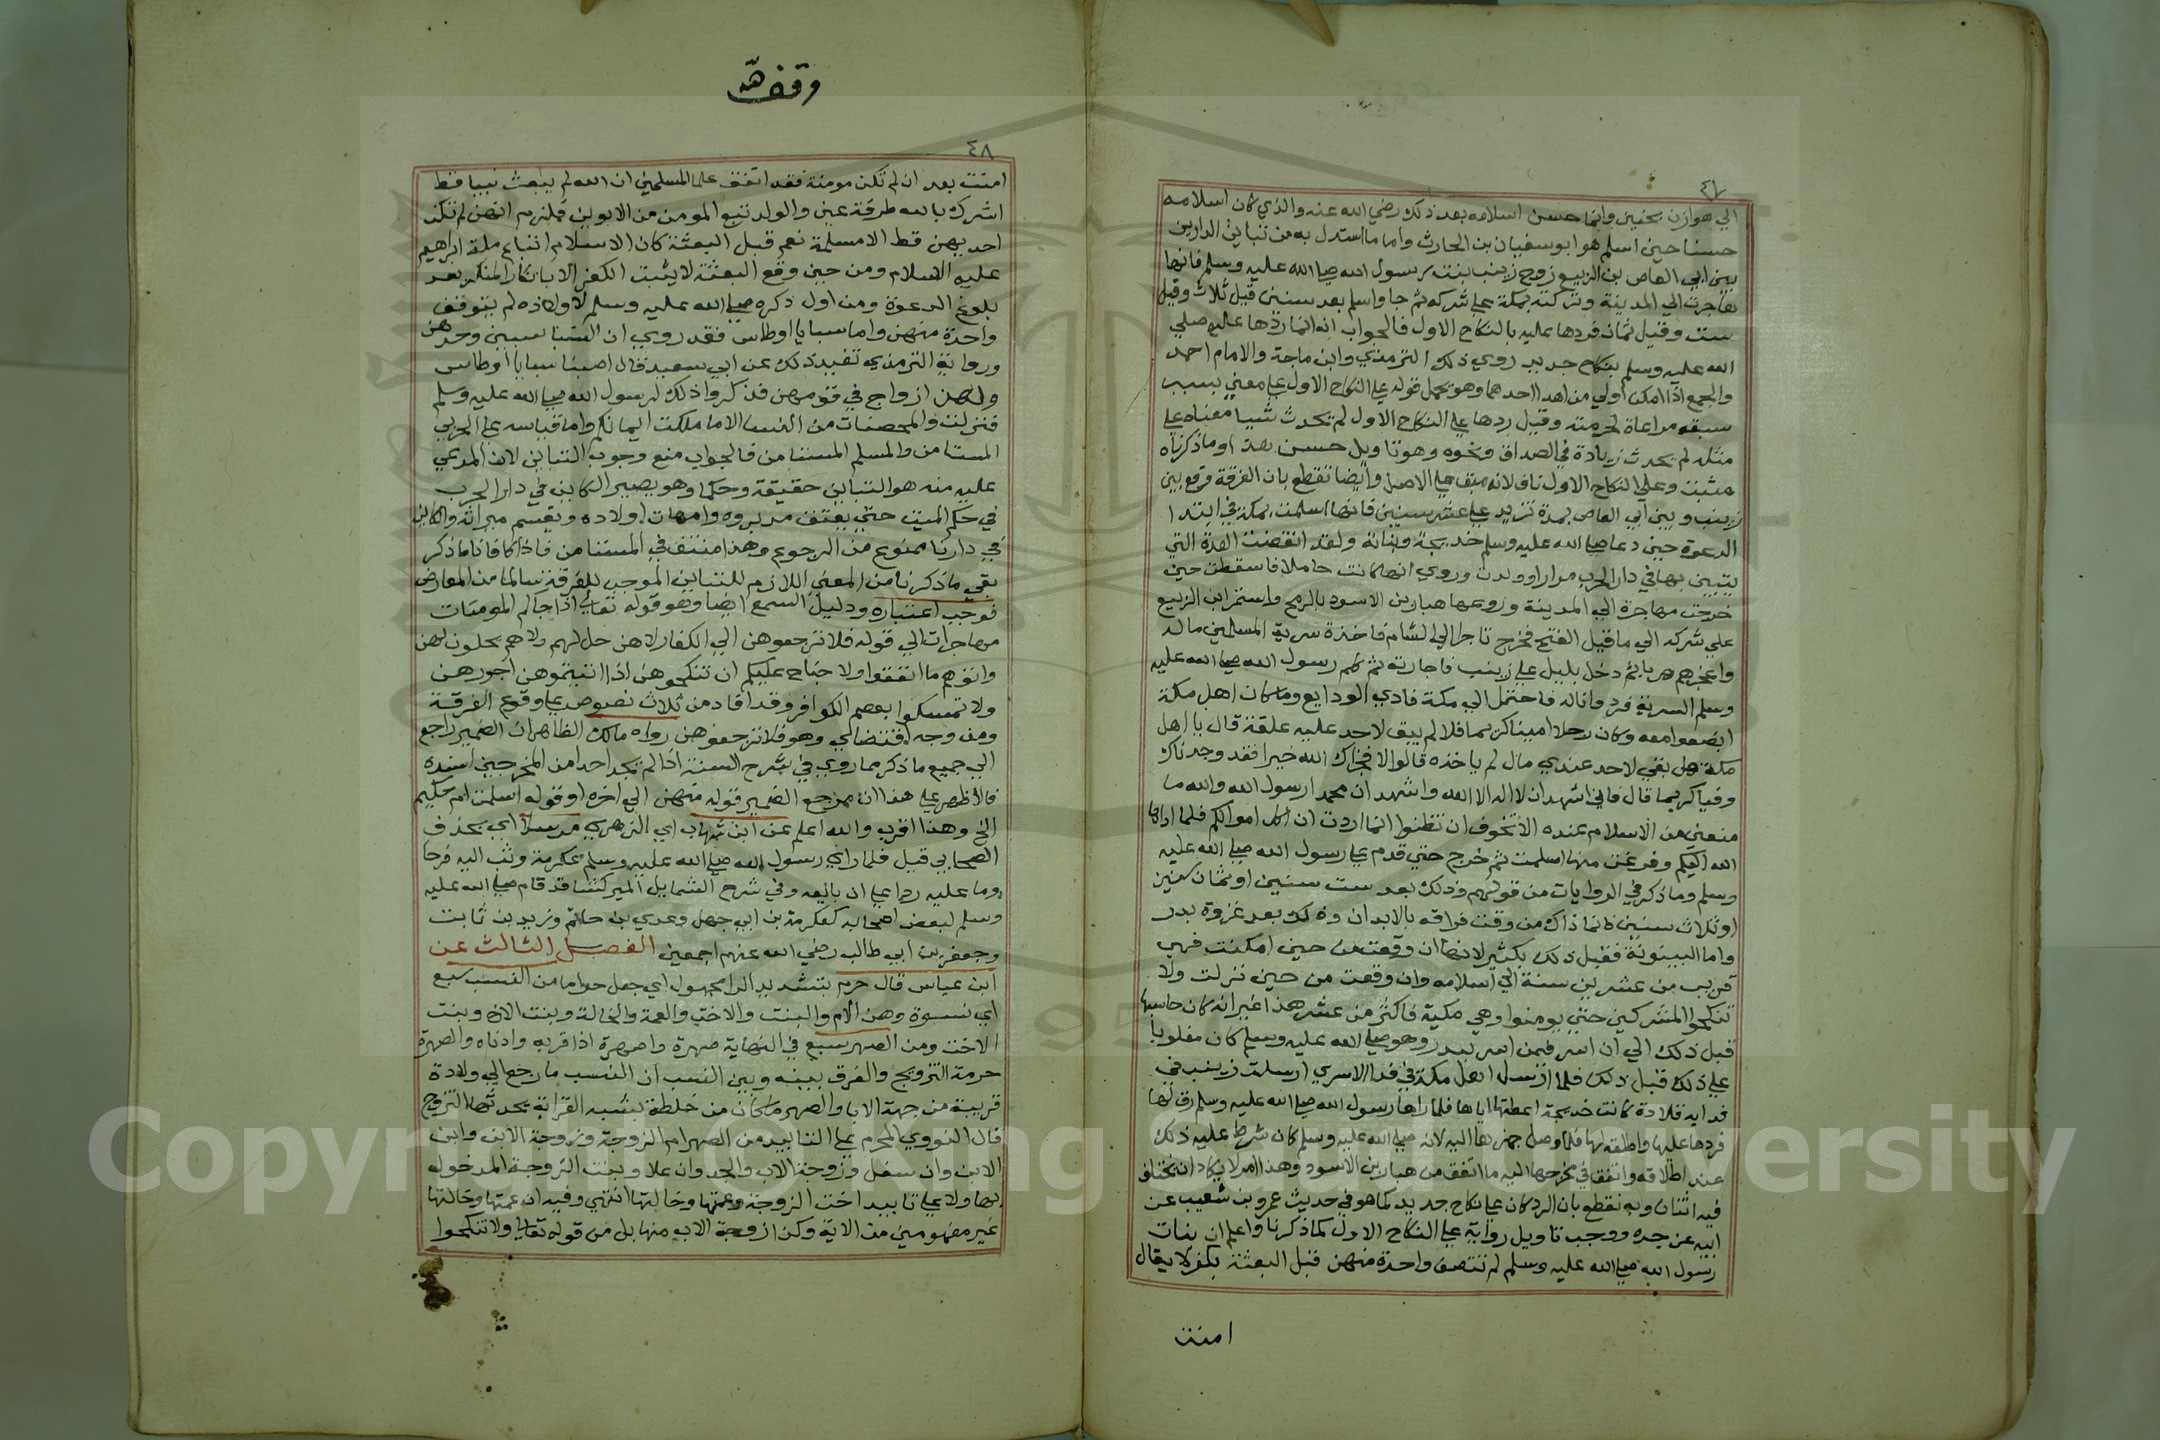 ٤٧
الي هوازن بحنين وانما حسن اسلامه بعد ذلك رضي الله عنه والذي كان اسلامه
حسنا حين اسلم هو ابو سفيان بن الحارث واما ما استدل به من تباين الدارين
بين ابي العاص بن الربيع زوج زينب بنت رسول الله صلي الله عليه وسلم فانها
هاجرت الي المدينة وتركته بمكة علي شركه ثم جا واسلم بعد سنين قيل ثلاث وقيل
ست وقيل ثمان فردها عليه بالنكاح الاول فالجواب انه انما ردها عليه صلي
الله عليه وسلم بنكاح جديد روي ذلك الترمذي وابن ماجة والامام احمد
والجمع اذا امكن اولي من اهدا احدهما وهو يحمل قوله علي النكاح الاول علي معني بسبب
سبقه مراعاة لحرمته وقيل ردها علي النكاح الاول لم تحدث شيا معناه علي
مثله لم يحدث زيادة في الصداق ونحوه وهو تاويل حسن هذا وما ذكرناه
مثبت وعلي النكاح الاول ناف لانه مبق علي الاصل وايضا نقطع بان الفرقة وقع بين
زينب وبين ابي العاص بمدة تزيد علي عشر سنين فانها اسلمت بمكة في ابتدا
الدعوة حين دعا صلي الله عليه وسلم خديجة وبناته ولقد انقضت العدة التي
يتبين بها في دار الحرب مرارا وولدت وروي انها كانت حاملا فاسقطت حين
خرجت مهاجرة الي المدينة وروعها هبار بن الاسود بالرمح واستمر ابن الربيع
علي شركه الي ما قبيل الفتح فخرج تاجرا الي الشام فاخذة سرية المسلمين ماله
واعجزهم هربا ثم دخل بليل علي زينب فاجارته ثم كلم رسول الله صلي الله عليه
وسلم السرية فردوا ماله فاحتمل الي مكة فادي الودايع وما كان اهل مكة
ابضعوا معه وكان رجلا امينا كريما فلما لم يبق لاحد عليه علقة قال يا اهل
مكة هل بقي لاحد عندي مال لم ياخذه قالوا لا فجزاك الله خيرا فقد وجدناك
وفيا كريما قال فاني اشهد ان لا اله الا الله واشهد ان محمدا رسول الله والله ما
منعني من الاسلام عنده الا تخوف ان تظنوا انما اردت ان اكل اموالكم فلما اداها
الله اليكم وفرغت منها اسلمت ثم خرج حتي قدم علي رسول الله صلي الله عليه
وسلم وما ذكر في الروايات من قولهم وذلك بعد ست سنين او ثمان سنين
او ثلاث سنين فانما ذاك من وقت فراقه بالابدان وذلك بعد غزوة بدر
واما البينونة فقبل ذلك بكثير لانها ان وقعت من حين امكنت فهي
قريب من عشرين سنة الي اسلامه وان وقعت من حين نزلت ولا
تنكحوا المشركين حتي يومنوا وهي مكية فاكثر من عشر هذا غير انه كان حابسها
قبل ذلك الي ان اسر فيمن اسر ببدر وهو صلي الله عليه وسلم كان مغلوبا
علي ذلك قبل ذلك فلما ارسل اهل مكة في فدا الاسري ارسلت زينب في
فدايه قلادة كانت خديجة اعطتها اياها فلما راها رسول الله صلي الله عليه وسلم رق لها
فردها عليها واطلقه لها فلما وصل جهزها اليه لانه صلي الله عليه وسلم كان شرط عليه ذلك
عند اطلاقه واتفق في مخرجها اليه ما اتفق من هبار بن الاسود وهذا امر لا يكاد ان يختلف
فيه اثنان وبه نقطع بان الرد كان علي نكاح جديد كما هو في حديث عمرو بن شعيب عن
ابيه عن جده ووجب تاويل رواية علي النكاح الاول كما ذكرنا واعلم ان بنات
رسول الله صلي الله عليه وسلم لم تتصف واحدة منهن قبل البعثة بكفر لا يقال
امنت
٤٨
امنت بعد ان لم تكن مومنة فقد اتفق علما المسلمين ان الله لم يبعث نبيا قط
اشرك بالله طرفة عين والولد تبع المومن من الابوين فلزم انهن لم تكن
احديهن قط الا مسلمة نعم قبل البعثة كان الاسلام اتباع ملة ابراهيم
عليه السلام ومن حين وقع البعثة لا يثبت الكفر الا بانكار المنكر بعد
بلوغ الدعوة ومن اول ذكره صلي الله عليه وسلم لاولاده لم يتوقف
واحدة منهن واما سبايا اوطاس فقد روي ان النسا سبين وحدهن
ورواية الترمذي تفيد ذلك عن ابي سعيد قال اصبنا سبايا اوطاس
ولهن ازواج في قومهن فذكروا ذلك لرسول الله صلي الله عليه وسلم
فنزلت والمحصنات من النسا الا ما ملكت ايمانكم واما قياسه علي الحربي
المستامن والمسلم المستامن فالجواب منع وجوب التباين لان المدعي
عليه منه هو التباين حقيقة وحكما وهو يصير الكاين في دار الحرب
في حكم الميت حتي يعتق مدبروه وامهات اولاده ويقسم ميراثه والكاين
في دارنا ممنوع من الرجوع وهذا منتف في المستامن
بقي ما ذكرنا من المعني اللازم للتباين الموجب للفرقة سالما من المعارض
فوجب اعتباره ودليل السمع ايضا وهو قوله تعالي اذا جاكم المومنات
مهاجرات الي قوله فلا ترجعوهن الي الكفار لا هن حل لهم ولا هم يحلون لهن
واتوهم ما انفقوا ولا جناح عليكم ان تنكحوهن اذا اتيتموهن اجورهن
ولا تمسكوا بعصم الكوافر وقد افاد من ثلاث نصوص علي وقوع الفرقة
ومن وجه اقتضاي وهو فلا ترجعوهن رواه مالك الظاهر ان الضمير راجع
الي جميع ما ذكر مما روي في شرح السنة اذا لم نجد احدا من المخرجين اسنده
فالاظهر علي هذا ان مرجع الضمير قوله منهن الي اخره او قوله اسلمت ام حكيم
الخ وهذا اقرب والله اعلم عن ابن شهاب اي الزهري مرسلا اي بحذف
الصحابي قيل فلما راي رسول الله صلي الله عليه وسلم عكرمة وثب اليه فرحا
وما عليه ردا علي ان بايعه وفي شرح الشمايل لميركشاه قد قام صلي الله عليه
وسلم لبعض اصحابه كعكرمة بن ابي جهل وعدي بن حاتم وزيد بن ثابت
وجعفر بن ابي طالب رضي الله عنهم اجمعين الفصل الثالث عن
ابن عباس قال حرم بتشديد الرا مجهول اي جعل حراما من النسب سبع
اي نسوة وهن الام والبنت والاخت والعمة والخالة وبنت الاخ وبنت
الاخت ومن الصهر سبع في النهاية صهرة واصهرة اذا قربه وادناه والصهرة
حرمة التزويج والفرق بينه وبين النسب ان النسب ما رجع الي ولادة
قريبة من جهة الابا والصهر ما كان من خلطة يشبه القرابة يحدثها التزوج
قال النووي المحرم علي التابيد من الصهر ام الزوجة وزوجة الابن وابن
الابن وان سفل وزوجة الاب والجد وان علا وبنت الزوجة المدخول
بها ولا علي تابيد اخت الزوجة وعمتها وخالتها انتهي وفيه ان عمتها وخالتها
غير مفهومين من الاية وكذا زوجة الاب منها بل من قوله تعالي ولا تنكحوا
Copyright © King Saud University